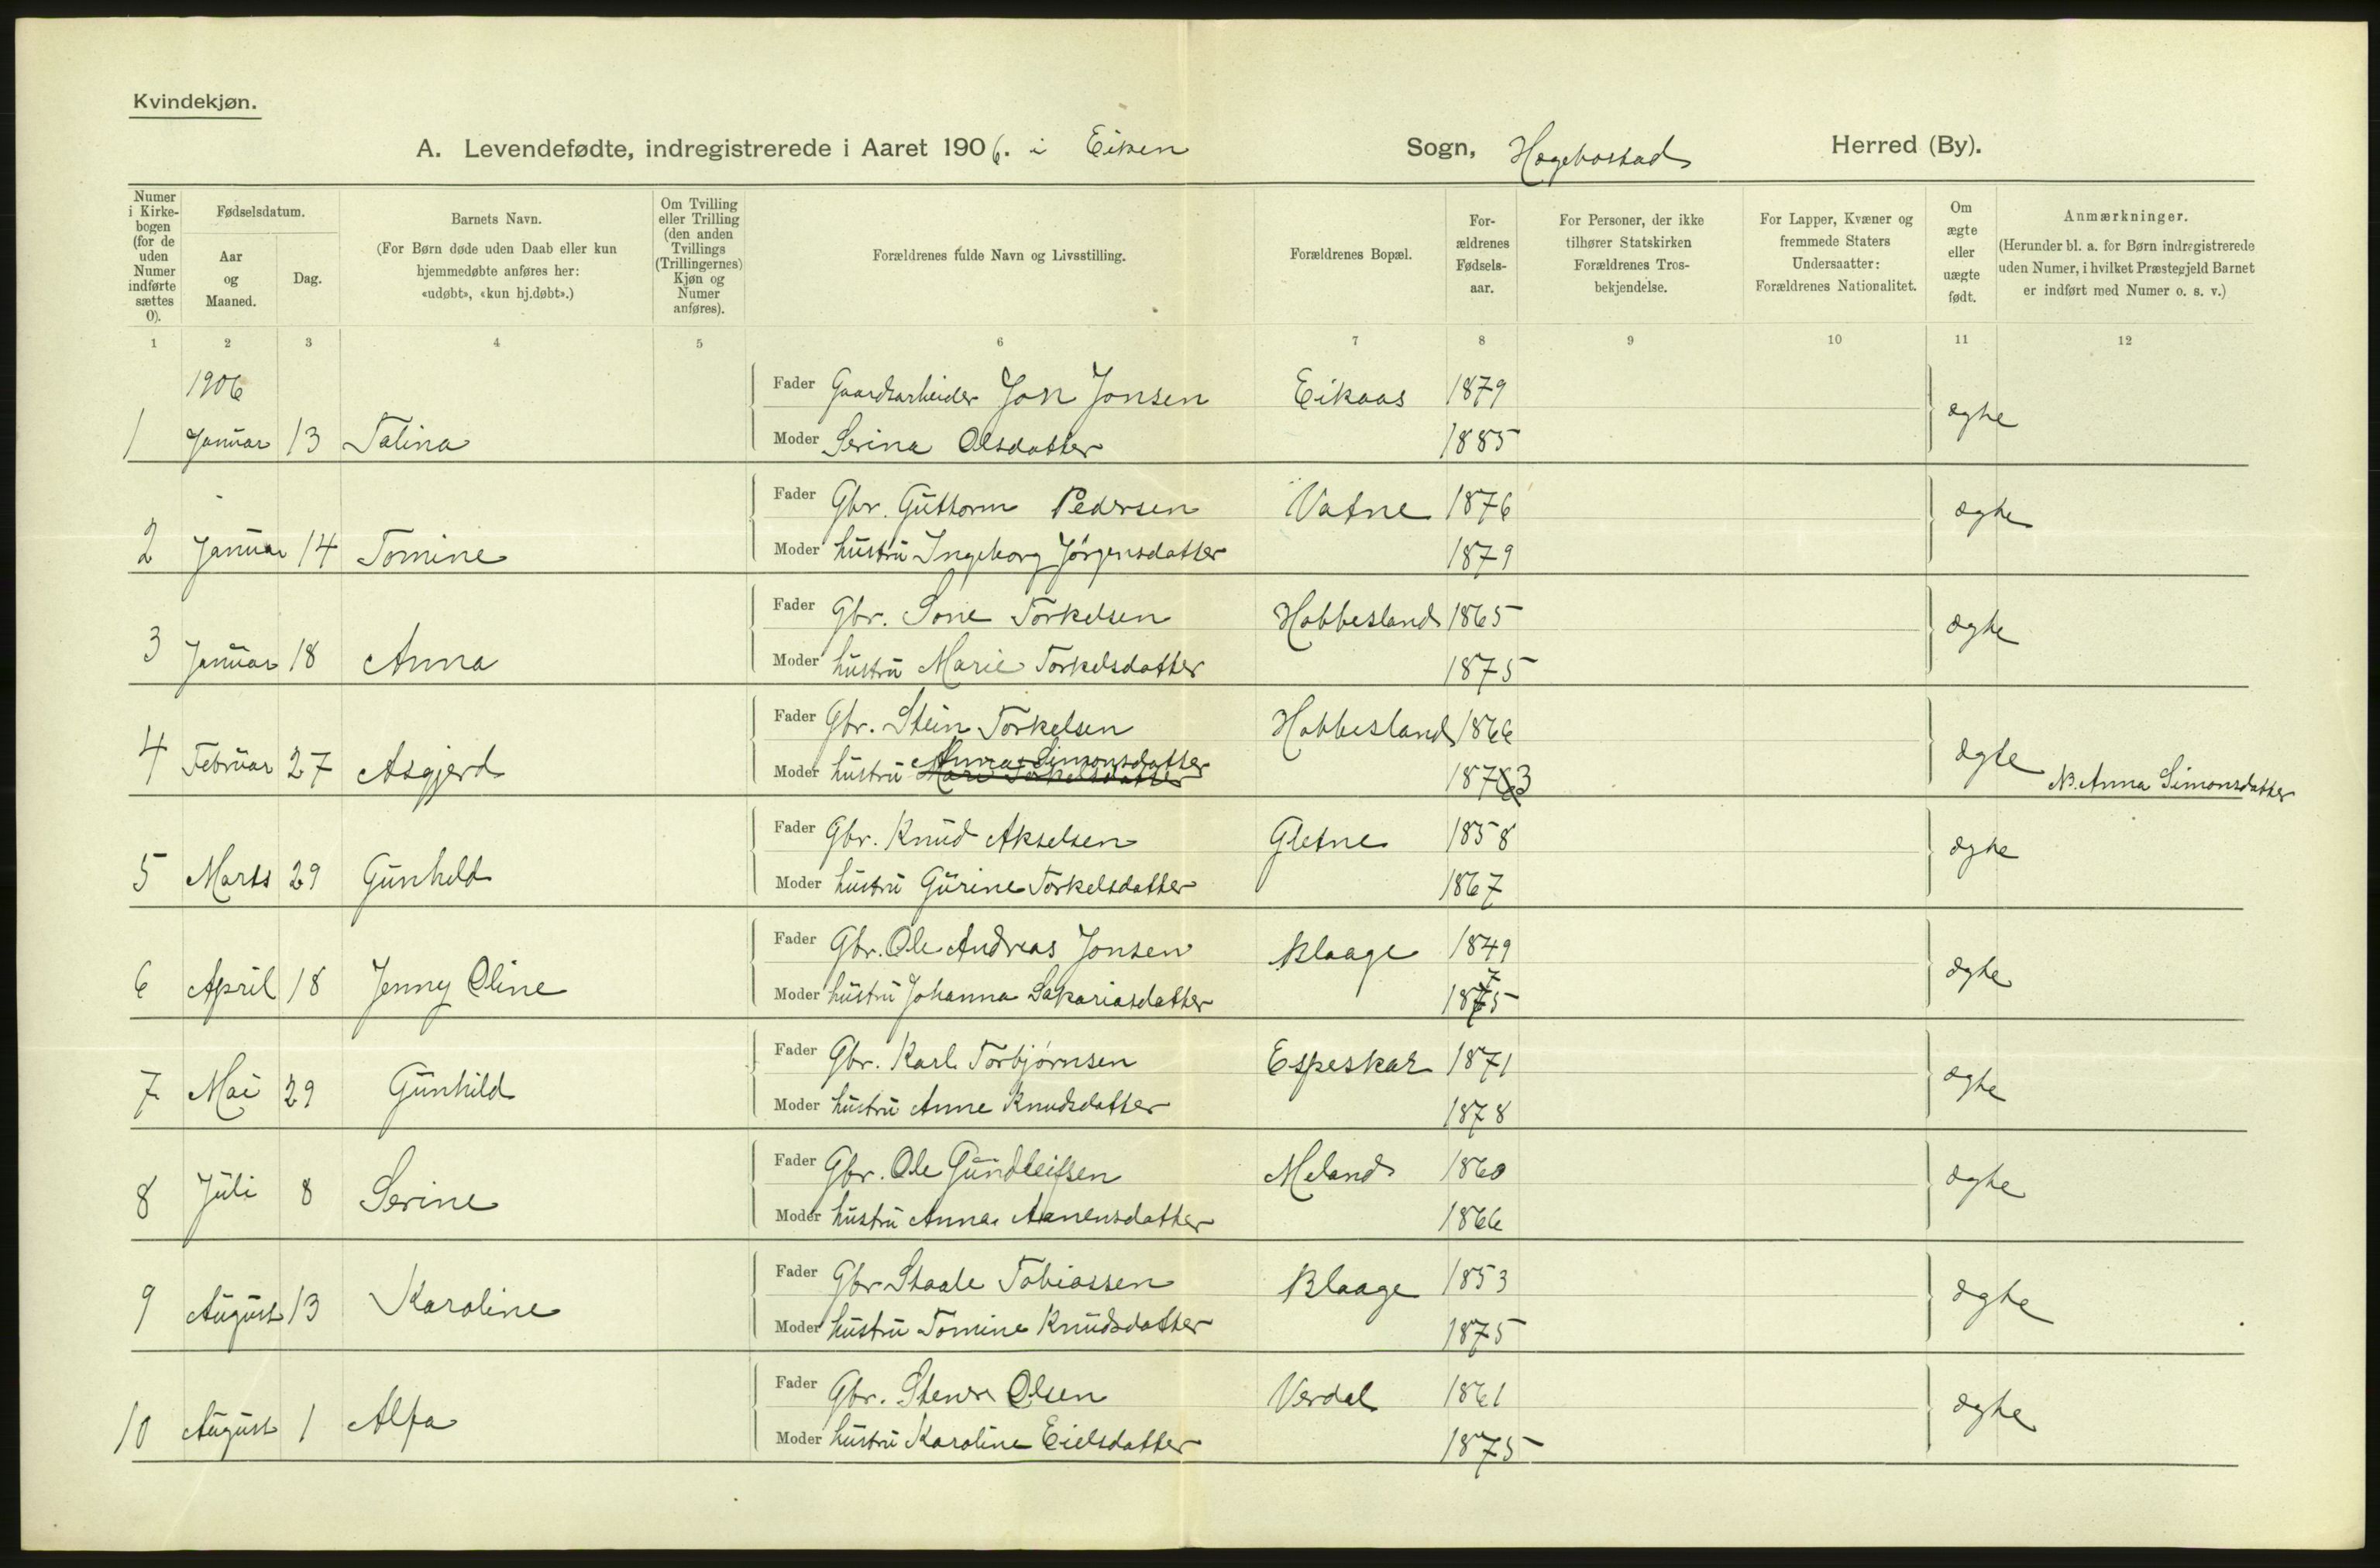 Kvindekjøn.
A. Levendefødte, indregistrerede i Aaret 1906. i Eiken Sogn, Hægebostad Herred (By).
Numer i Kirkebogen (for de uden Numer indførte sættes 0).
Fødselsdatum.
Aar og Maaned.
Dag.
Barnets Navn.
(For Børn døde uden Daab eller kun hjemmedøbte anføres her: «udøbt», «kun hj.døbt».)
Om Tvilling eller Trilling (den anden Tvillings (Trillingernes) Kjøn og Numer anføres).
Forældrenes fulde Navn og Livsstilling.
Forældrenes Bopæl.
For-ældrenes Fødsels-aar.
For Personer, der ikke tilhører Statskirken Forældrenes Tros-bekjendelse.
For Lapper, Kvæner og fremmede Staters Undersaatter: Forældrenes Nationalitet.
Om ægte eller uægte født.
Anmærkninger.
(Herunder bl. a. for Børn indregistrerede uden Numer, i hvilket Præstegjeld Barnet er indført med Numer o. s. v.)
1 2 3 4 5 6 7 8 9 10 11 12
1906 Fader Gaardsarbeider Jon Jonsen Eikaas 1879
1 Januar 13 Talina Moder Serina Olsdatter 1885 ægte
Fader Gbr. Guttorm Pedersen Vatne 1876
2 Januar 14 Tomine Moder hustru Ingeborg Jørgensdatter 1879 ægte
Fader Gbr. Sone Torkelsen Hobbesland 1865
3 Januar 18 Anna Moder hustru Marie Torkelsdatter 1875 ægte
Fader Gbr. Stein Torkelsen Hobbesland 1866
4 Februar 27 Asgjerd Moder hustru Anna Simonsdatter 1873 ægte NB. Anna Simonsdatter
Fader Gbr. Knud Akselsen Gletne 1858
5 Marts 29 Gunhild Moder hustru Gurine Torkelsdatter 1867 ægte
Fader Gbr. Ole Andreas Jonsen Blaage 1849
6 April 18 Jenny Oline Moder hustru Johanna Sakariasdatter 1875 ægte
Fader Gbr. Karl Torbjørnsen Espeskar 1871
7 Mai 29 Gunhild Moder hustru Anne Knudsdatter 1878 ægte
Fader Gbr. Ole Gundleifsen Meland 1860
8 Juli 8 Serine Moder hustru Anna Aanensdatter 1866 ægte
Fader Gbr Staale Tobiassen Blaage 1853
9 August 13 Karoline Moder hustru Tomine Knudsdatter 1875 ægte
Fader Gbr. Olsen Verdal 1861
10 August 1 Alfa Moder hustru Karoline Eielsdatter 1875 ægte